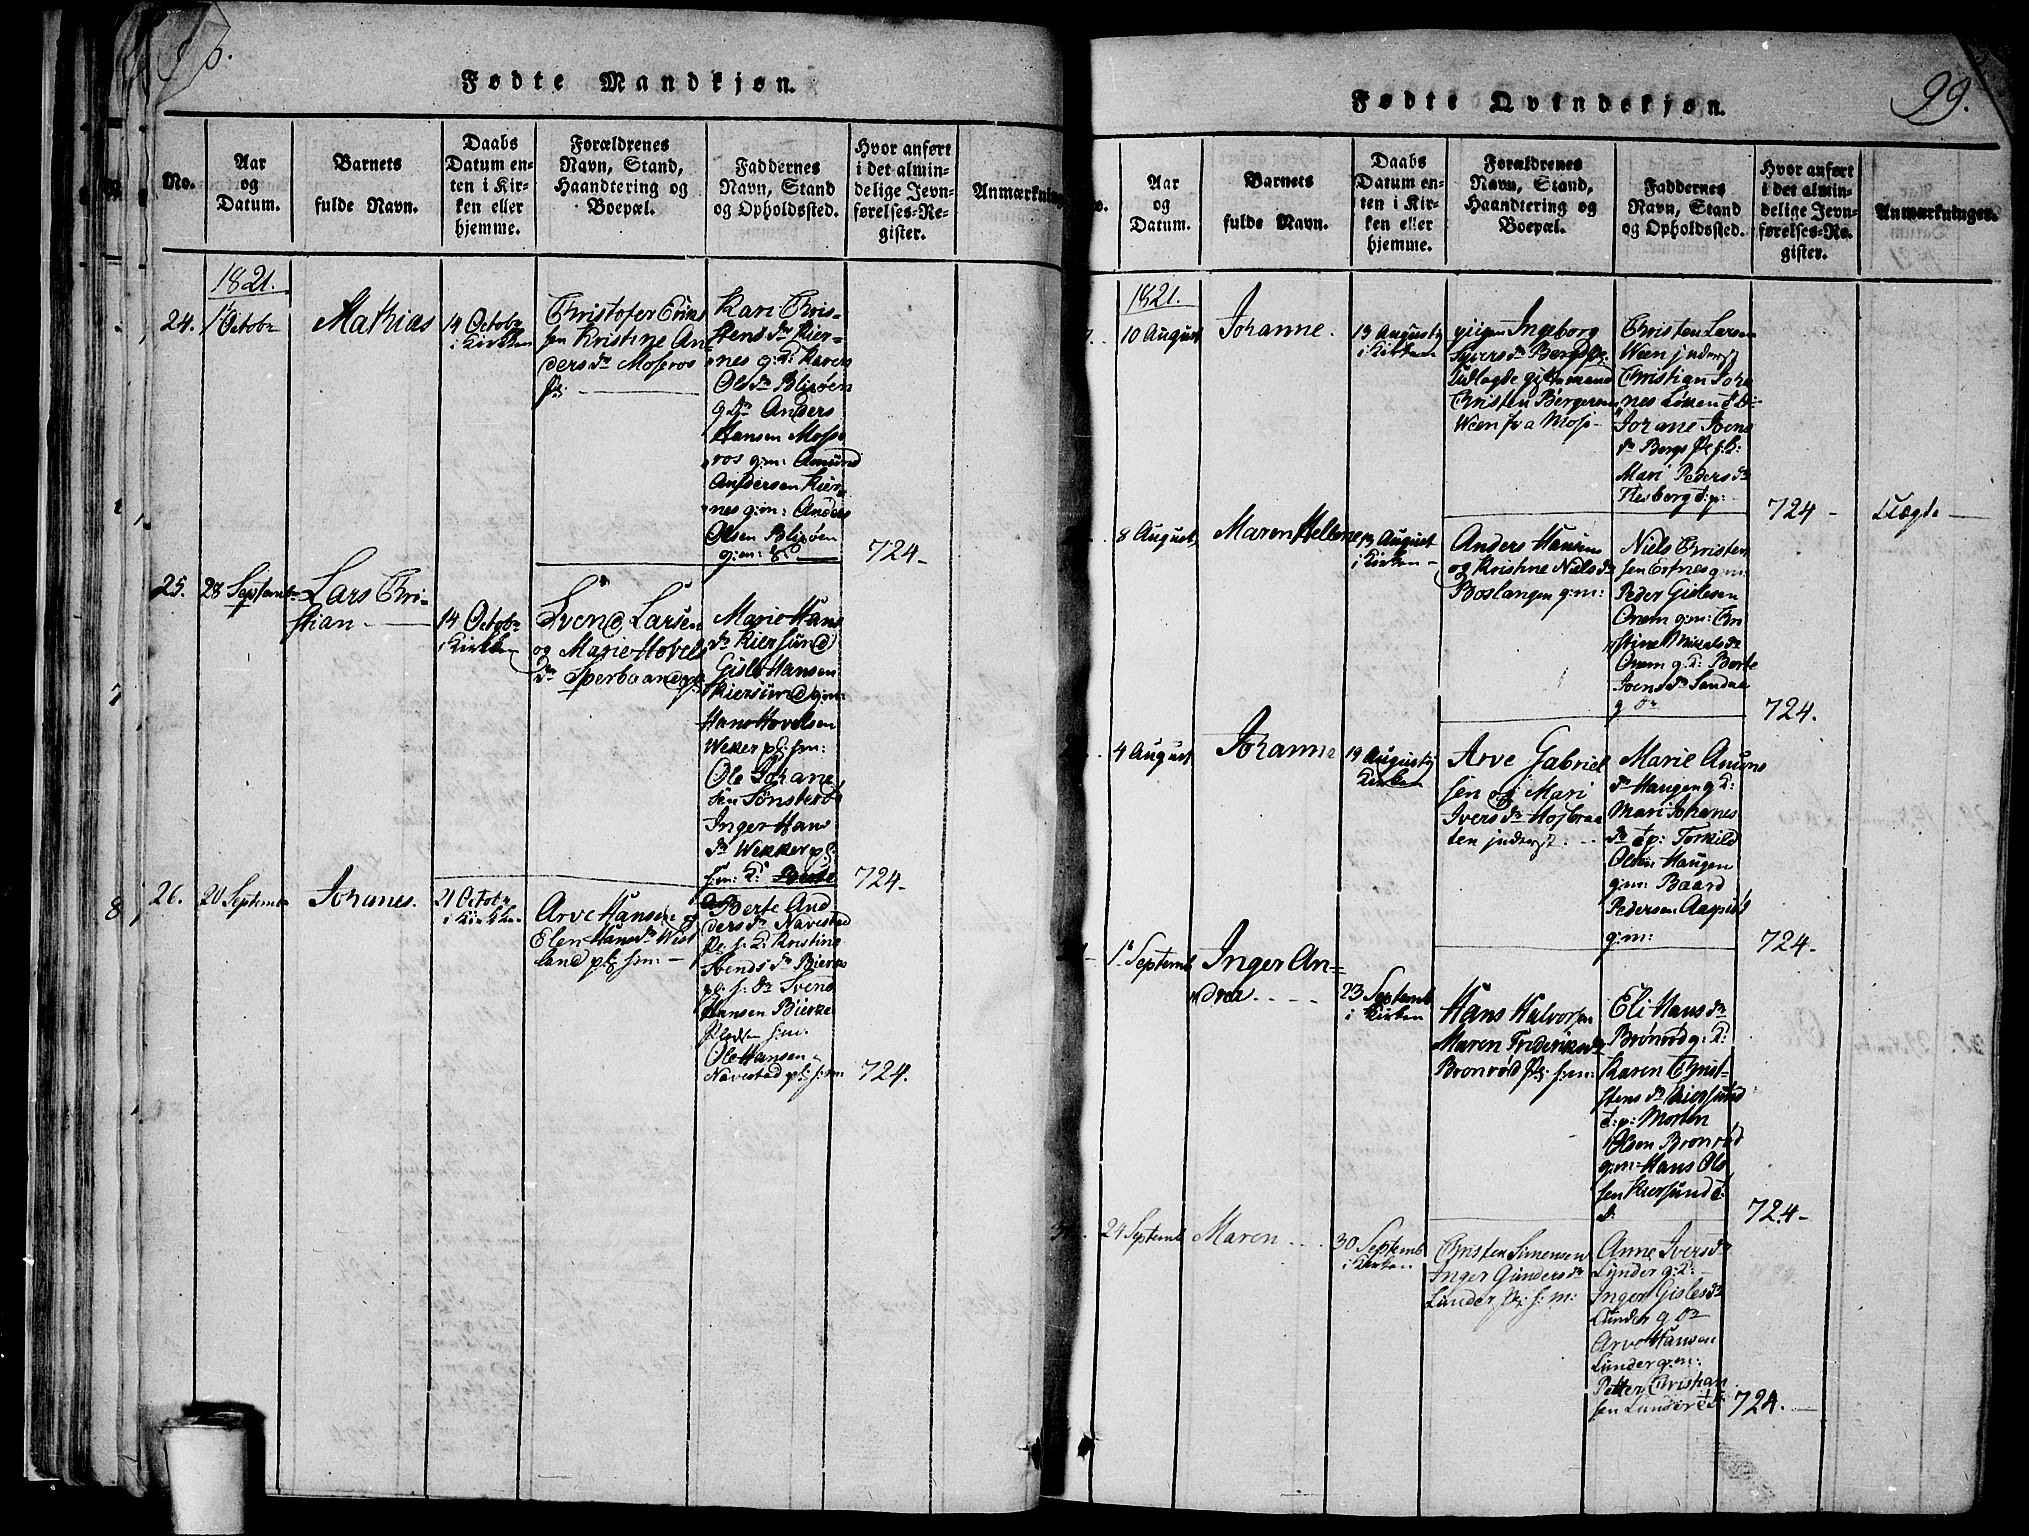 Fødte Mandkjøn.
No.
Aar
og
Datum.
Barnets
fulde Navn.
Daabs
Datum en-
ten i Kir-
ken eller
hjemme.
Forældrenes
Navn, Stand,
Haandtering og
Boepæl.
Faddernes
Navn, Stand
og Opholdssted.
Hvor anført
i det almin-
delige Jevn-
førelses-Re-
gister.
Anmærkning
1821.
24.
1 Octobr
Mathias
14 Octobr
i Kirken
Christofer Erik
sen Kristine An-
ders dr Mosseros
Kari Chris-
tens dr Kier-
nes g: K: Karen
Ols dr Blixöen
Anders
Hansen Mosse
ros g:m: Amund
Andersen Kier-
nes g:m: Anders
Olsen Blixöen
g:m:
724-
25.
28 Septembr
Lars Chri-
stian
14 Octobr
i Kirken
Svend Larsen
og Marie Hovels
dr
Marie Hans
dr Kiersund
Gisle Hansen
Kiersund g:m:
Hans Hovelsen
Wekker pl: s:m:
Ole Johane
sen Sønsterød
Inger Hans
dr Wekker pl:
724-
26.
20 Septembr
Johanes.
21 Octobr
i Kirken
Arve Hansen og
Elen Hans dr West
land pl: s:m:
Berte And
ders dr Navestad
Kristine
Svends dr Bierke
Svend
Hansen Bierke
Pladsen s:m:
Ole Hansen
Navestad pl: s:m:
724.
99.
Fødte Qvindekjøn.
Aar
og
Datum.
Barnets
fulde Navn.
Daabs
Datum en-
ten i Kir-
ken eller
hjemme.
Forældrenes
Navn, Stand,
Haandtering og
Boepæl.
Faddernes
Navn, Stand
og Opholdssted.
Hvor anført
i det almin-
delige Jevn-
førelses-Re-
gister.
Anmærkninger.
1821.
10 August
Johanne.
19 August
i Kirken
pigen Ingeborg
Syvers dr Bergs
Udlagde gift mand
Christen Bergersen
Ween fra Moss-
Christen Larsen
Ween inderst
Christian Joha
nes Løken
Johane Svens
dr Bergs
Mari Peders dr
Flesberg t:p:
724-
8 August
Maren Hellene
19 August
i Kirken-
Anders Hansen
og Kristine Niels dr
Boslangen g:m:
Niels Christen
sen Tortnes g:m:
Peder Gislesen
Orem g:m: Chri
stine Nikels dr
Orem g: K: Berte
Svens dr Sandaa
724.
4 August
Johanne
19 August
Kirken
Arve Gabriel
sen og Mari
Ivers dr Hojbraa
ten inderst.
Marie Amuns
dr Haugen g: K:
Mari Johanes
dr t:p: Torkild
Olsen Haugen
g:m: Baard
Pedersen
g:m:
724-
1 Septemb
Inger An-
drea
23 Septemb
i Kirken
Hans Halvorsen
Maren Frideriks dr
Bronrød pl: s:m:
Eli Hans dr
Brönröd g: K:
Karen Christ-
tens dr Kiersund
t:p: Morten
Olsen Bronröd
g:m: Hans Ols
sen Kiersund
724-
24 Septemb
Maren
30 Septemb
i Kirken
Christen Simensen
Inger Gunders dr
Lunder pl: s:m:
Anne Ivers dr
Lunder g: K:
Inger Gisles dr
Lunder
Arve Hansen
Lunder g:m:
Petter Christian
sen Lunder
724.